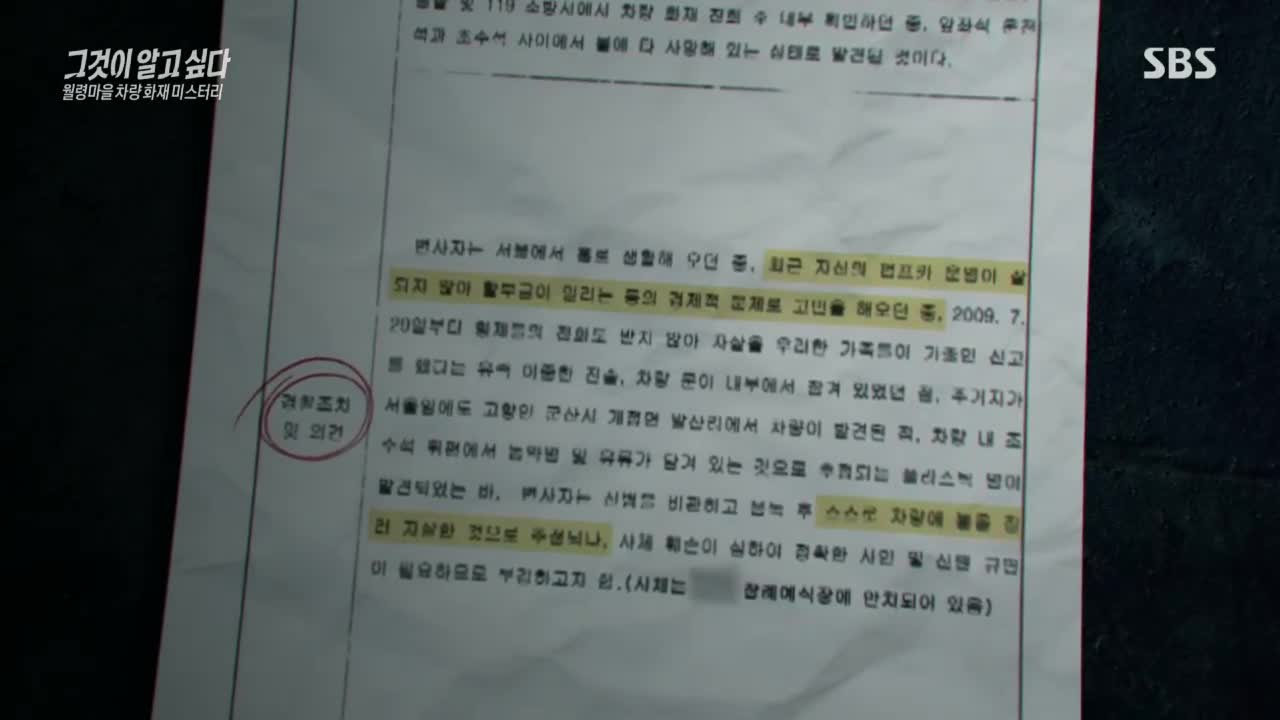 그것이 알고 싶다
월령마을 차량 화재 미스터리
SBS
및 119 소방서에서 차량 화재 진화 후 내부 확인하던 중, 앞좌석 운전
석과 조수석 사이에서 불에 타 사망해 있는 상태로 발견된 것이다.
변사자는 서울에서 홀로 생활해 오던 중, 최근 자신의 덤프카 운영이 잘
되지 않아 할부금이 밀리는 등의 경제적 문제로 고민을 해오던 중, 2009. 7.
20일부터 형제들의 전화도 받지 않아 자살을 우려한 가족들이 가출인 신고
를 했다는 유족 진술, 차량 문이 내부에서 잠겨 있었던 점, 주거지가
경찰조치
및 의견
서울임에도 고향인 군산시 개정면 발산리에서 차량이 발견된 점, 차량 내 조
수석 뒤편에서 농약병 및 유류가 담겨 있는 것으로 추정되는 플라스틱 병이
발견되었는 바, 변사자는 신병을 비관하고 음독 후 스스로 차량에 불을 질
러 자살한 것으로 추정되나, 사체 훼손이 심하여 정확한 사인 및 신원 규명
이 필요하므로 부검하고자 함.(사체는 장례예식장에 안치되어 있음)